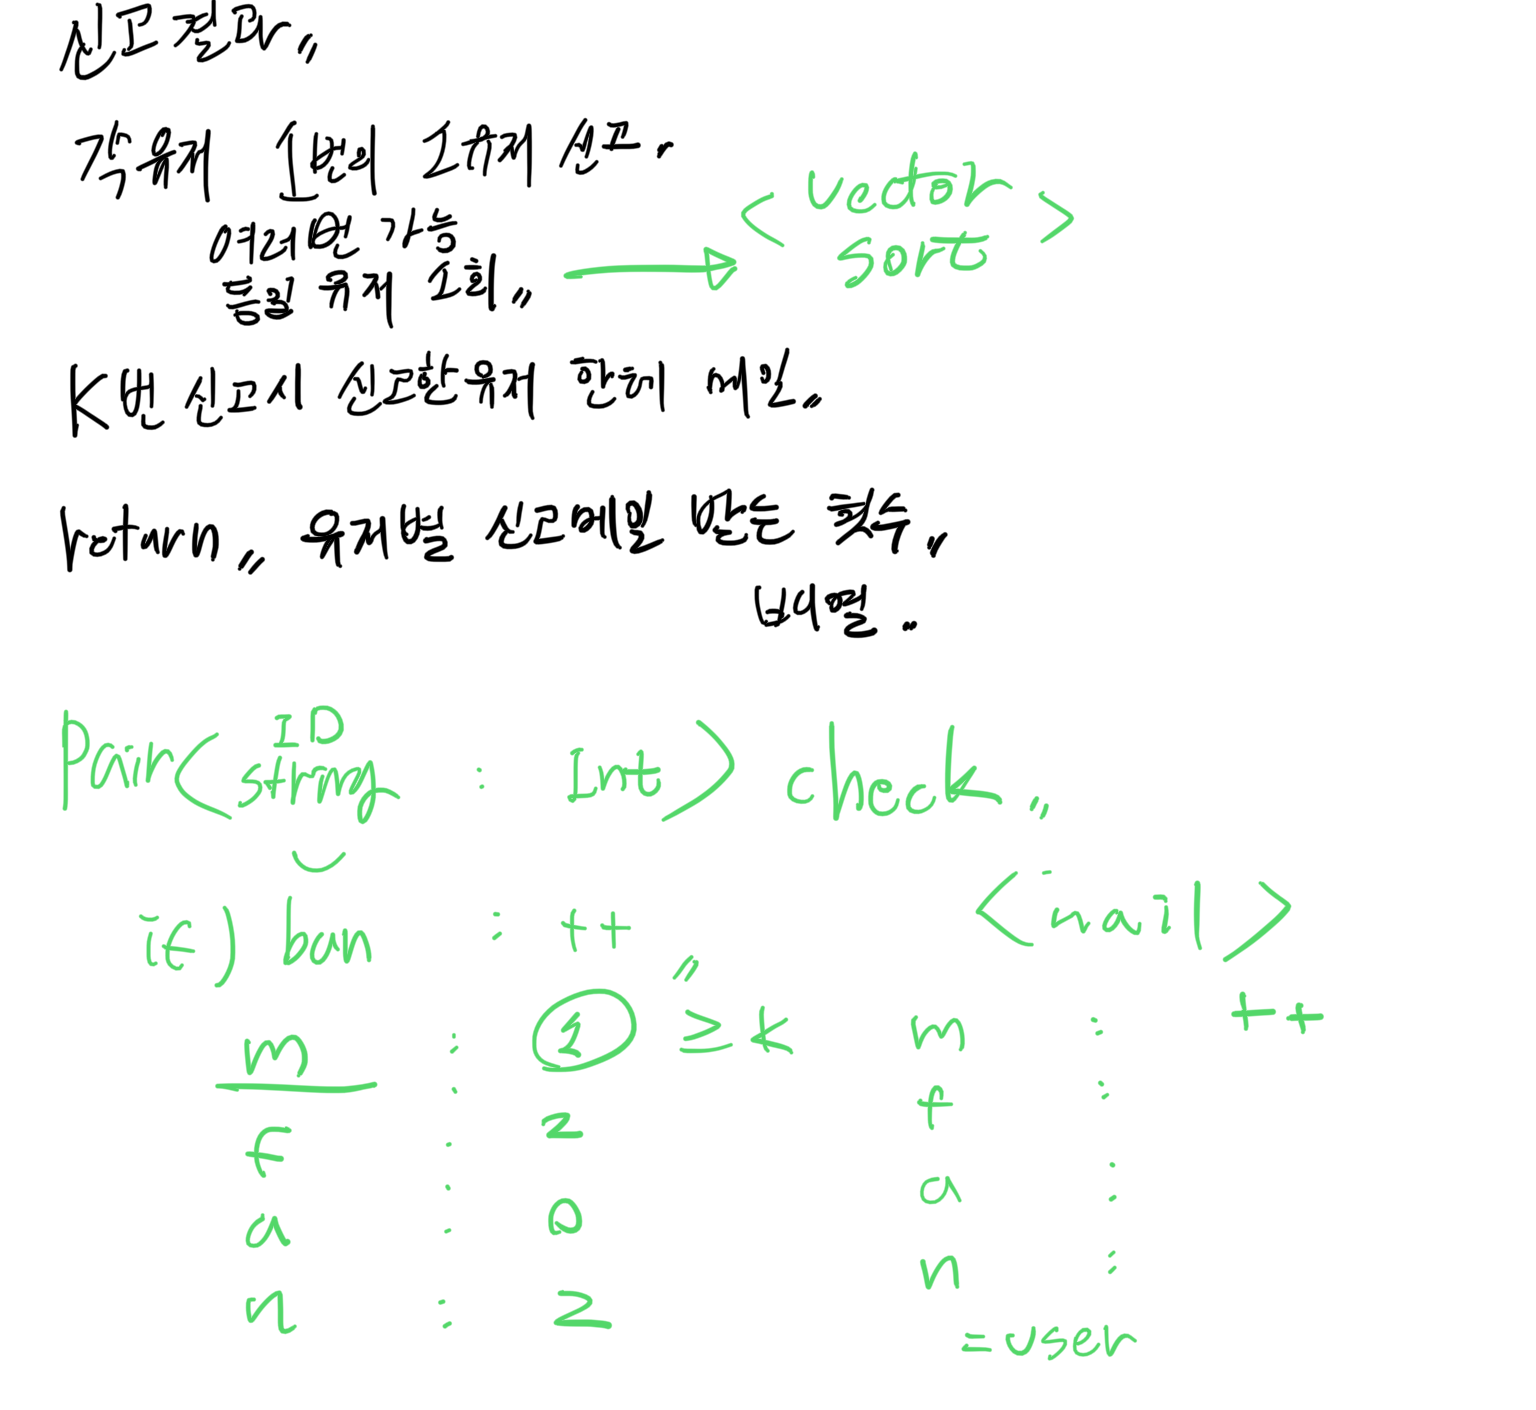 신고결과〃
각유저 1번의 1유저 신고.
여러번 가능
동일 유저 1회〃
<vector
sort>
K번 신고시 신고한유저 한테 메일〃
return〃 유저별 신고메일 받는 횟수〃
배열..
ID
Pair(string : Int) check〃
if) ban : ++〃
m : 1 ≥ K
f : 2
a : 0
n : 2
<mail>
m : ++
f :
a :
n :
= user